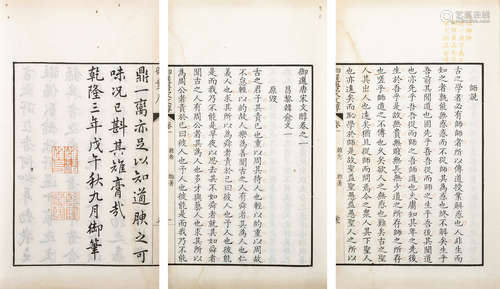 鼎一臠亦足以知道腴之可
味況已斟其雄膏哉
乾隆三年戊午秋九月御筆
御選唐宋文醇卷之一
昌黎韓愈文一
原毀
古之君子其責已也重以周其待人也輕以約重以周故
不怠輕以約故人樂為善聞古之人有舜者其為人也仁
義人也求其所以為舜者責於已曰彼人也予人也彼能
是而我乃不能是早夜以思去其不如舜者就其如舜者
聞古之人有周公者其為人也多才與藝人也求其所以
為周公者責於已曰彼人也予人也彼能是而我乃不能
師說
古之學者必有師師者所以傳道授業解惑也人非生而
知之者孰能無惑惑而不從師其為惑也終不解矣生乎
吾前其聞道也固先乎吾吾從而師之生乎吾後其聞道
也亦先乎吾吾從而師之吾師道也夫庸知其年之先後
生於吾乎是故無貴無賤無長無少道之所存師之所存
也嗟乎師道之不傳也久矣欲人之無惑也難矣古之聖
人其出人也遠矣猶且從師而問焉今之衆人其下聖人
也亦遠矣而恥學於師是故聖益聖愚益愚聖人之所以